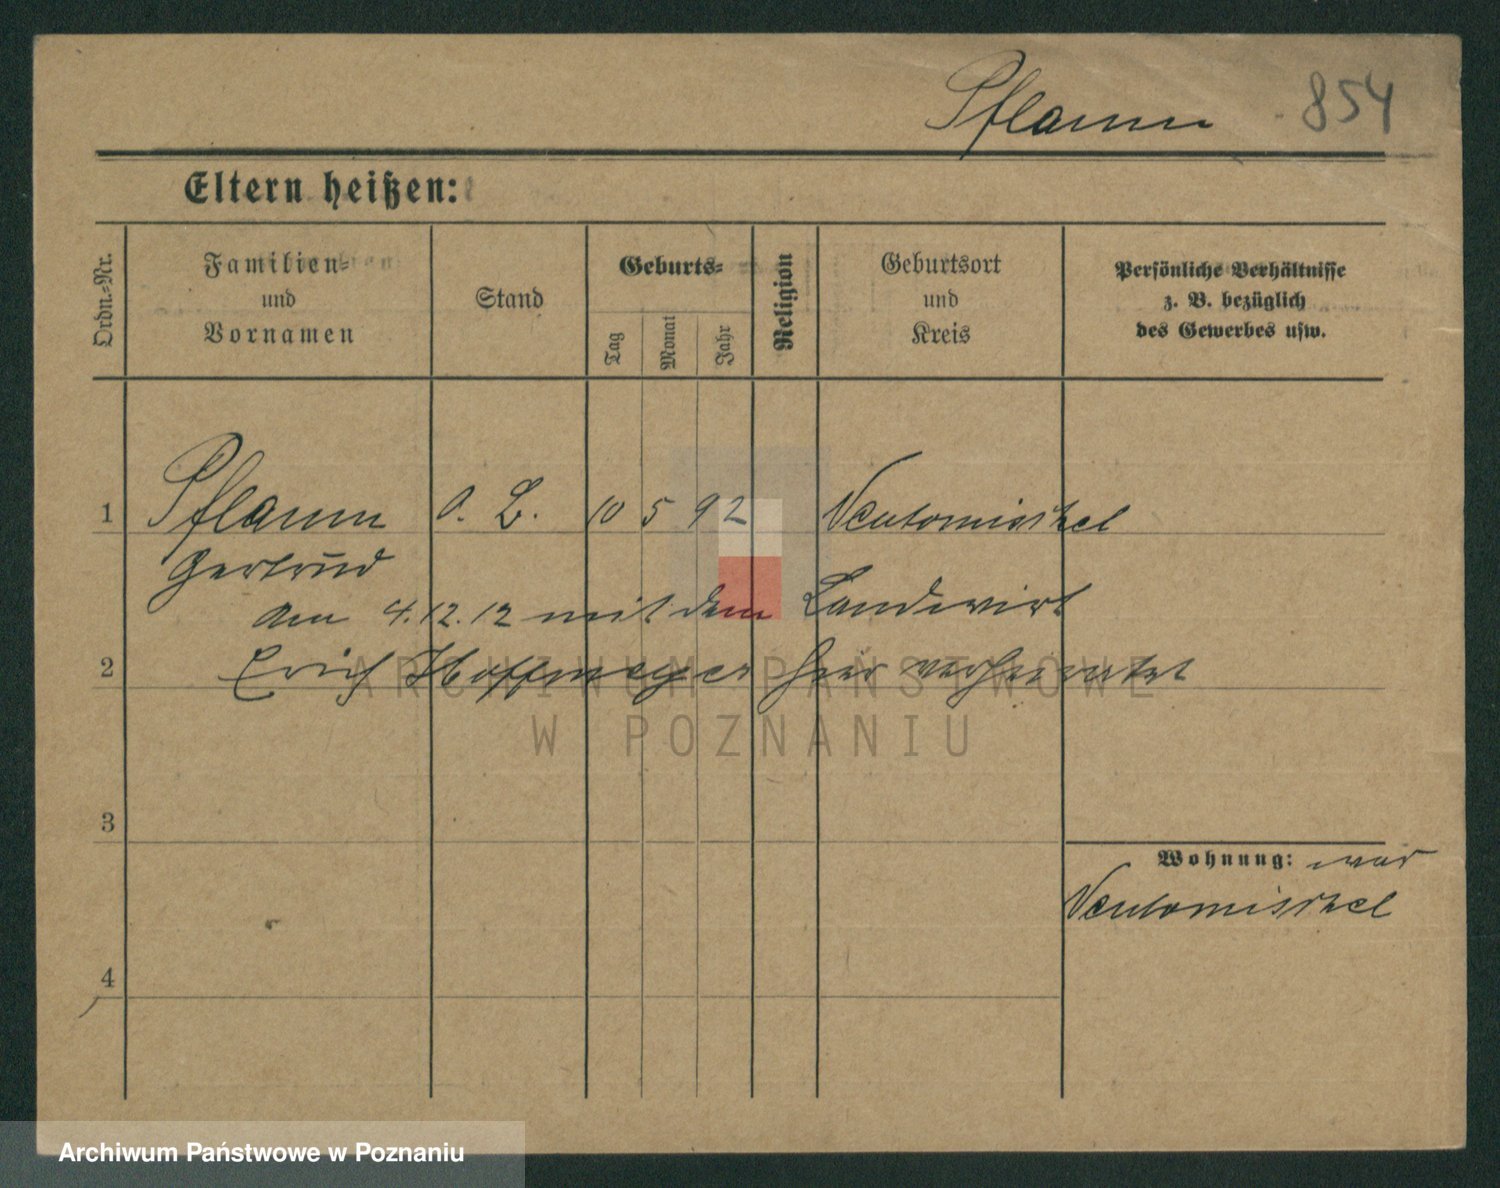 Pflaum 854
Eltern heißen:
Ordn.-Nr.
Familien-
und
Vornamen
Stand
Geburts-
Tag
Monat
Jahr
Religion
Geburtsort
und
Kreis
Persönliche Verhältnisse
z. B. bezüglich
des Gewerbes usw.
1 Pflaum O. B. 10 5 92 Neutomischel
Gertrud
am 4.12.12 mit dem Landwirt
2 Erich Hoffmeyer hier verheiratet
ARCHIWUM PAŃSTWOWE
W POZNANIU
3
Wohnung: war
Neutomischel
4
Archiwum Państwowe w Poznaniu